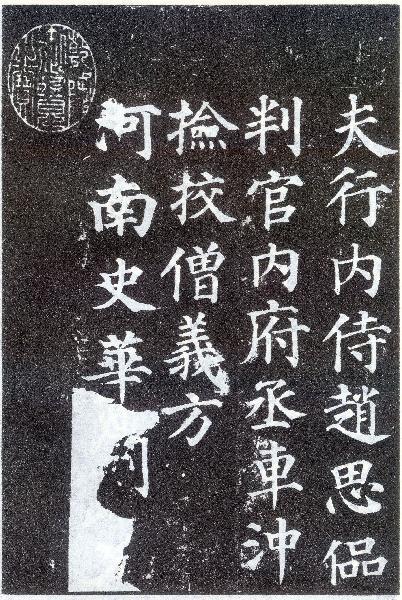 夫行内侍趙思偘
判官内府丞車沖
撿挍僧義方
河南史華